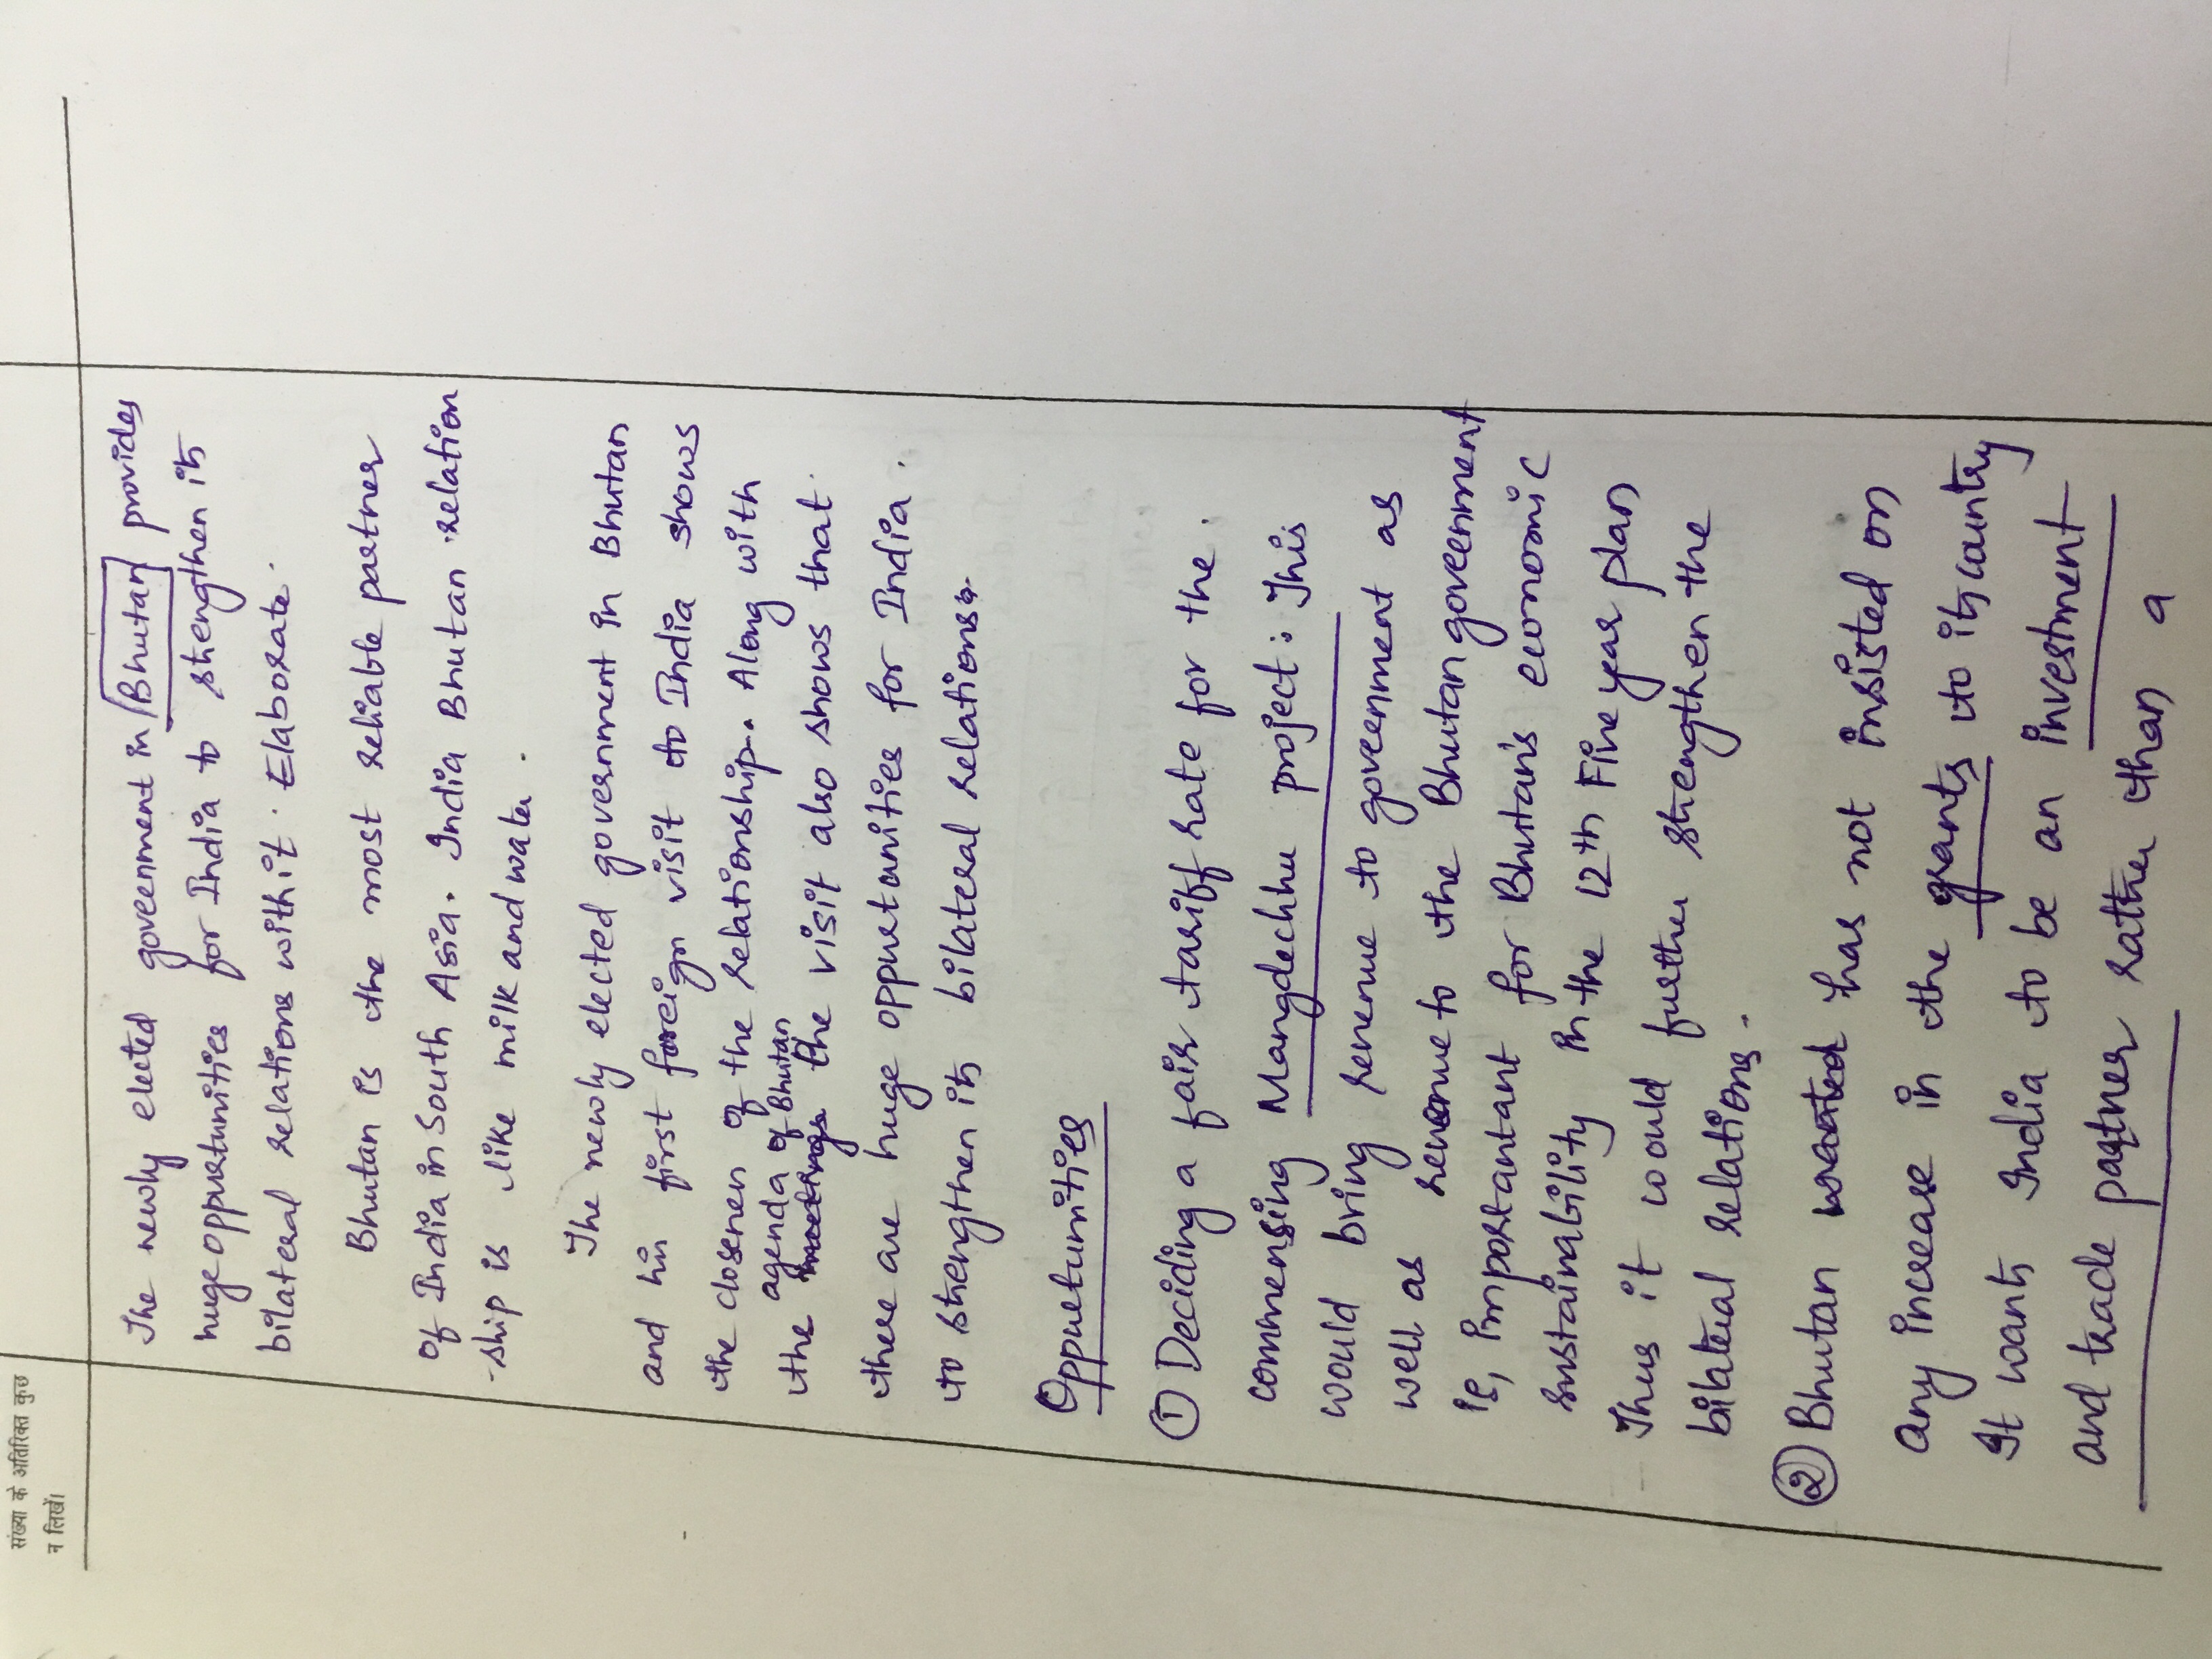 संख्या के अतिरिक्त कुछ
न लिखें।
The newly elected government in Bhutan provides
huge oppurtunities for India to strengthen its
bilateral relations with it. Elaborate.
Bhutan is the most reliable partner
of India in South Asia. India Bhutan relation
-ship is like milk and water.
The newly elected government in Bhutan
and his first foreign visit to India shows
the closeness of the relationship. Along with
agenda of Bhutan
the meetings the visit also shows that
there are huge oppurtunities for India
to strengthen its bilateral relations.
Oppurtunities
① Deciding a fair tariff rate for the
commensing Mangdechhu project: This
would bring revenue to government as
well as revenue to the Bhutan government
is, important for Bhutan's economic
sustainability in the 12th Five year plan
Thus it would further strengthen the
bilateral relations.
② Bhutan wanted has not insisted on
any increase in the grants to its country
It wants India to be an investment
and trade partner rather than a